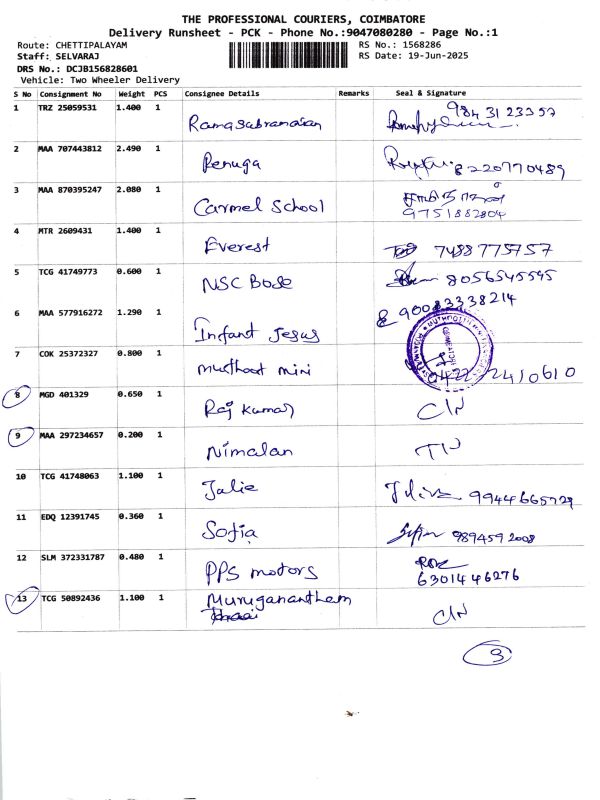 THE PROFESSIONAL COURIERS, COIMBATORE
Delivery Runsheet - PCK - Phone No.:9047080280 - Page No.:1
Route: CHETTIPALAYAM RS No.: 1568286
Staff: SELVARAJ RS Date: 19-Jun-2025
DRS No.: DCJB156828601
Vehicle: Two Wheeler Delivery
S No Consignment No Weight PCS Consignee Details Remarks Seal & Signature
1 TRZ 25059531 1.400 1 Ramasubramanian 9843123357
2 MAA 707443812 2.490 1 Renuga 8220770489
3 MAA 870395247 2.080 1 Carmel School 9751882804
4 MTR 2609431 1.400 1 Everest 7488775757
5 TCG 41749773 0.600 1 NSC Bode 8056545595
6 MAA 577916272 1.290 1 Infant Jesus 90083338214
7 COK 25372327 0.800 1 muthoot mini 0422 2410610
8 MGD 401329 0.650 1 Raj kumar C/N
9 MAA 297234657 0.200 1 Nimalan
10 TCG 41748063 1.100 1 Julie 9944665729
11 EDQ 12391745 0.360 1 Sofia 9894592008
12 SLM 372331787 0.480 1 PPS motors
6301446276
13 TCG 50892436 1.100 1 Muruganantham C/N
3